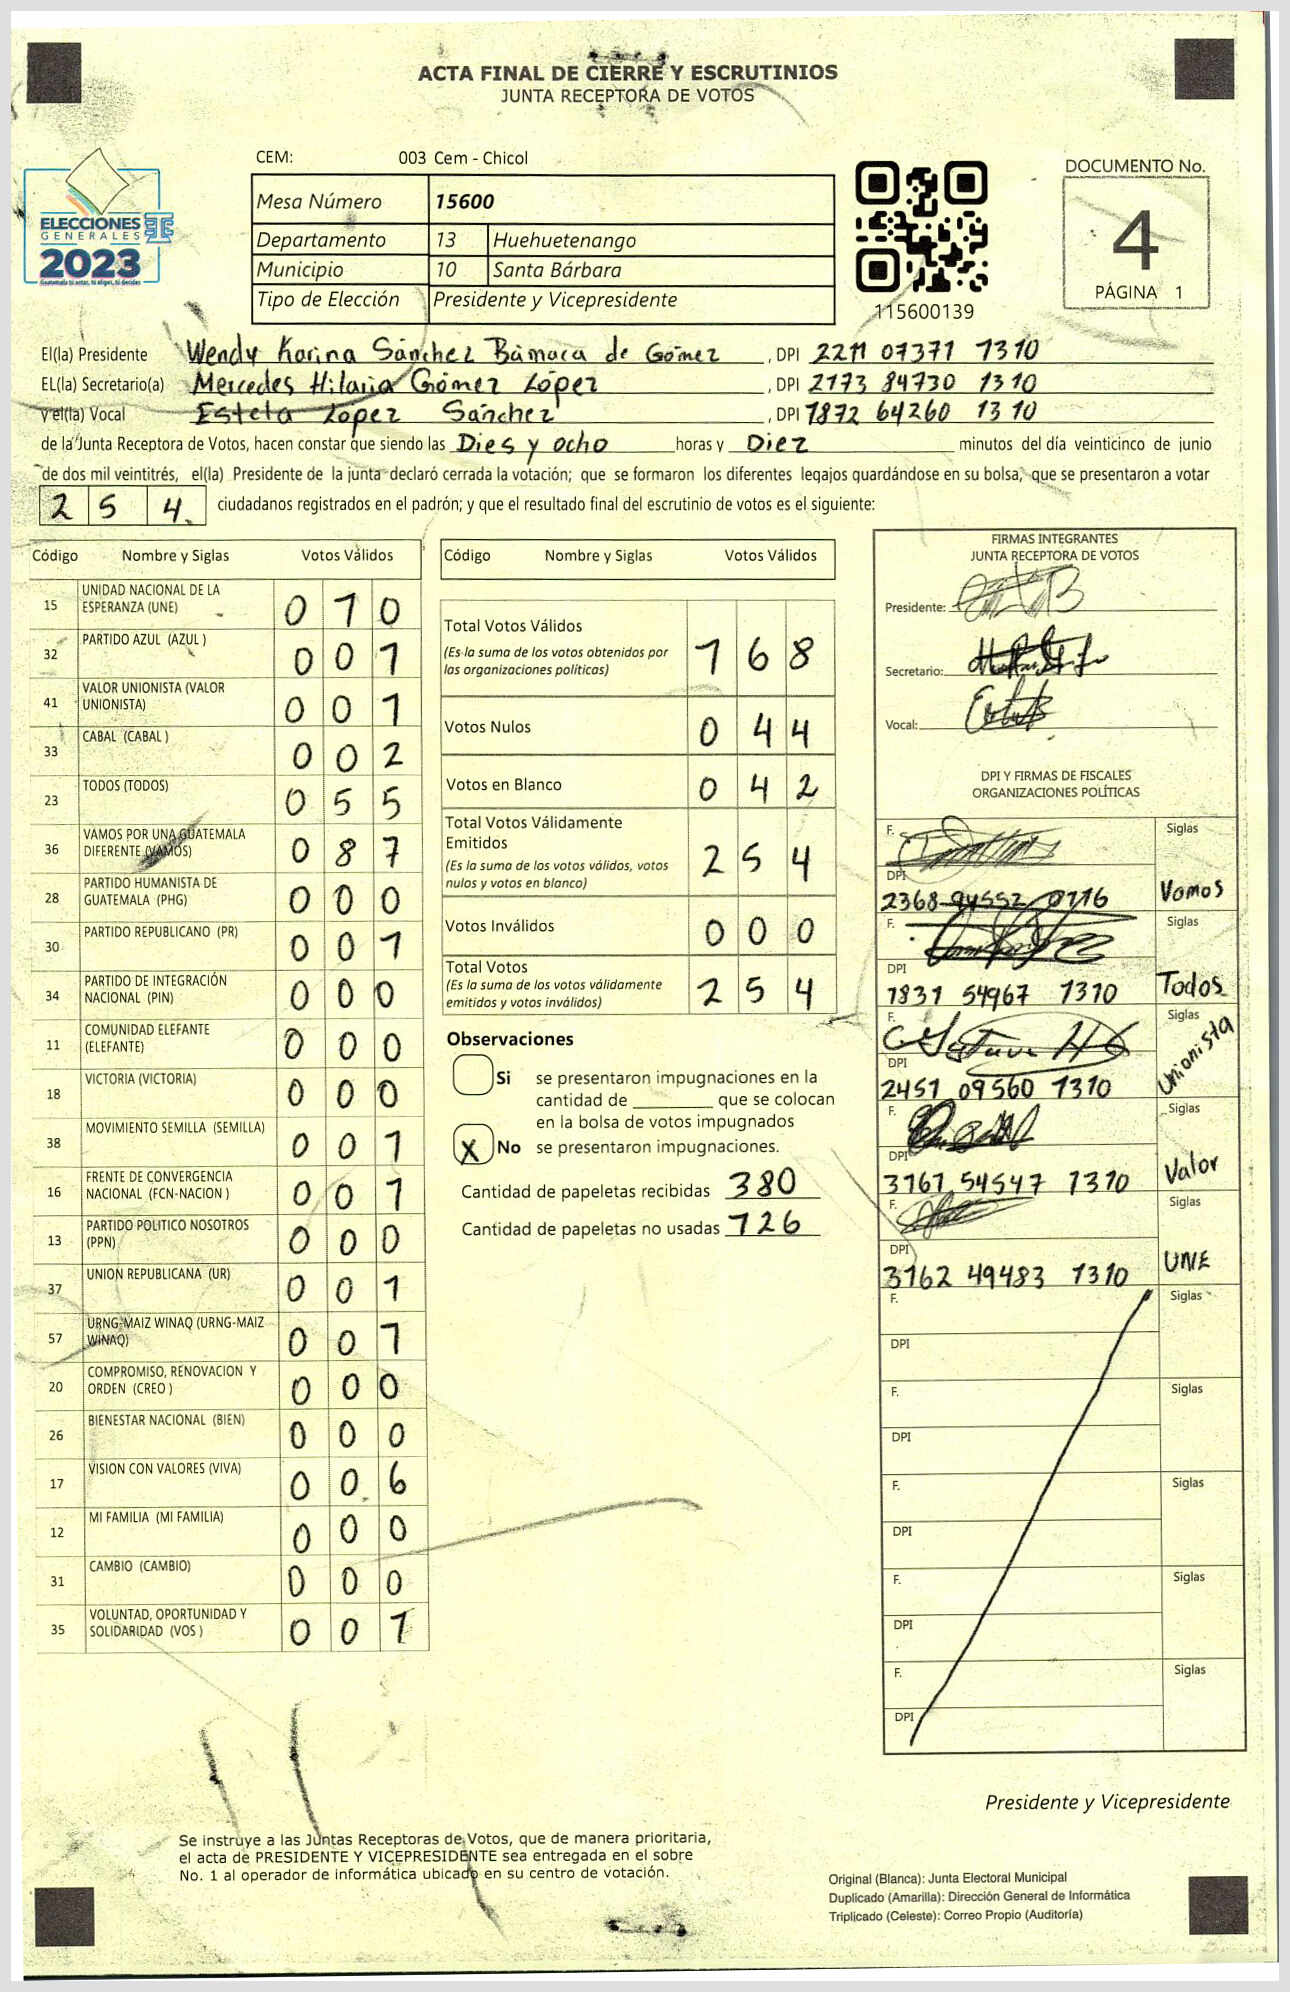 ACTA FINAL DE CIERRE Y ESCRUTINIOS
JUNTA RECEPTORA DE VOTOS
ELECCIONES
GENERALES
2023
CEM: 003 Cem - Chicol
Mesa Número 15600
Departamento 13 Huehuetenango
Municipio 10 Santa Bárbara
Tipo de Elección Presidente y Vicepresidente
115600139
DOCUMENTO No.
4
PÁGINA 1
El(la) Presidente Wendy Karina Sánchez Bámaca de Gómez , DPI 2211 07371 1310
EL(la) Secretario(a) Mercedes Hilaria Gómez López , DPI 2173 84730 1310
y el(la) Vocal Estela López Sánchez , DPI 1872 64260 1310
de la Junta Receptora de Votos, hacen constar que siendo las Dies y ocho horas y Diez minutos del día veinticinco de junio
de dos mil veintitrés, el(la) Presidente de la junta declaró cerrada la votación; que se formaron los diferentes legajos quardándose en su bolsa, que se presentaron a votar
2 5 4 ciudadanos registrados en el padrón; y que el resultado final del escrutinio de votos es el siguiente:
Código Nombre y Siglas Votos Válidos
15 UNIDAD NACIONAL DE LA ESPERANZA (UNE) 0 1 0
32 PARTIDO AZUL (AZUL ) 0 0 1
41 VALOR UNIONISTA (VALOR UNIONISTA) 0 0 1
33 CABAL (CABAL ) 0 0 2
23 TODOS (TODOS) 0 5 5
36 VAMOS POR UNA GUATEMALA DIFERENTE (VAMOS) 0 8 7
28 PARTIDO HUMANISTA DE GUATEMALA (PHG) 0 0 0
30 PARTIDO REPUBLICANO (PR) 0 0 1
34 PARTIDO DE INTEGRACIÓN NACIONAL (PIN) 0 0 0
11 COMUNIDAD ELEFANTE (ELEFANTE) 0 0 0
18 VICTORIA (VICTORIA) 0 0 0
38 MOVIMIENTO SEMILLA (SEMILLA) 0 0 1
16 FRENTE DE CONVERGENCIA NACIONAL (FCN-NACION ) 0 0 1
13 PARTIDO POLITICO NOSOTROS (PPN) 0 0 0
37 UNION REPUBLICANA (UR) 0 0 1
57 URNG-MAIZ WINAQ (URNG-MAIZ WINAQ) 0 0 1
20 COMPROMISO, RENOVACION Y ORDEN (CREO ) 0 0 0
26 BIENESTAR NACIONAL (BIEN) 0 0 0
17 VISION CON VALORES (VIVA) 0 0 6
12 MI FAMILIA (MI FAMILIA) 0 0 0
31 CAMBIO (CAMBIO) 0 0 0
35 VOLUNTAD, OPORTUNIDAD Y SOLIDARIDAD (VOS ) 0 0 1
Código Nombre y Siglas Votos Válidos
Total Votos Válidos 1 6 8
(Es la suma de los votos obtenidos por
las organizaciones políticas)
Votos Nulos 0 4 4
Votos en Blanco 0 4 2
Total Votos Válidamente
Emitidos 2 5 4
(Es la suma de los votos válidos, votos
nulos y votos en blanco)
Votos Inválidos 0 0 0
Total Votos 2 5 4
(Es la suma de los votos válidamente
emitidos y votos inválidos)
Observaciones
Si se presentaron impugnaciones en la
cantidad de ________ que se colocan
en la bolsa de votos impugnados
X No se presentaron impugnaciones.
Cantidad de papeletas recibidas 380
Cantidad de papeletas no usadas 126
FIRMAS INTEGRANTES
JUNTA RECEPTORA DE VOTOS
Presidente:
Secretario:
Vocal:
DPI Y FIRMAS DE FISCALES
ORGANIZACIONES POLÍTICAS
F. Siglas
DPI
2368 94552 0116 Vamos
F. Siglas
DPI
1831 54967 1310 Todos
F. Siglas
DPI
2451 09560 1310 Unionista
F. Siglas
DPI
3161 54547 1310 Valor
F. Siglas
DPI
3162 49483 1310 UNE
F. Siglas
DPI
F. Siglas
DPI
F. Siglas
DPI
F. Siglas
DPI
F. Siglas
DPI
Presidente y Vicepresidente
Se instruye a las Juntas Receptoras de Votos, que de manera prioritaria,
el acta de PRESIDENTE Y VICEPRESIDENTE sea entregada en el sobre
No. 1 al operador de informática ubicado en su centro de votación.
Original (Blanca): Junta Electoral Municipal
Duplicado (Amarilla): Dirección General de Informática
Triplicado (Celeste): Correo Propio (Auditoría)